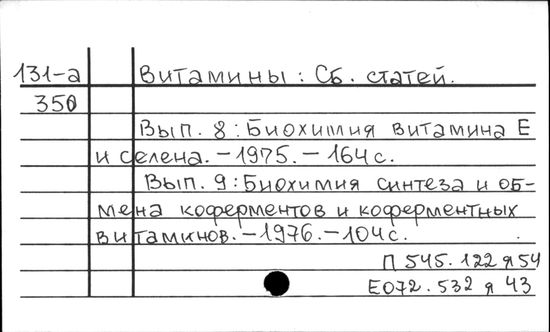 131-а Витамины: Сб. статей.
350
Вып. 8: Биохимия витамина Е
и селена. - 1975. - 164 с.
Вып. 9: Биохимия синтеза и об-
мена коферментов и коферментных
витаминов. - 1976. - 104 с.
П 545.122 я 54
Е072.532 я 43